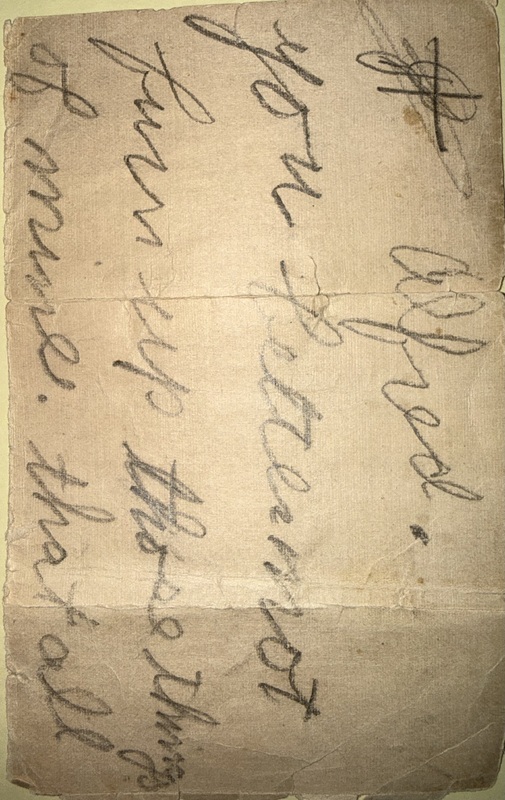 Alfred.
you better not
furn up those things
of mine. that all